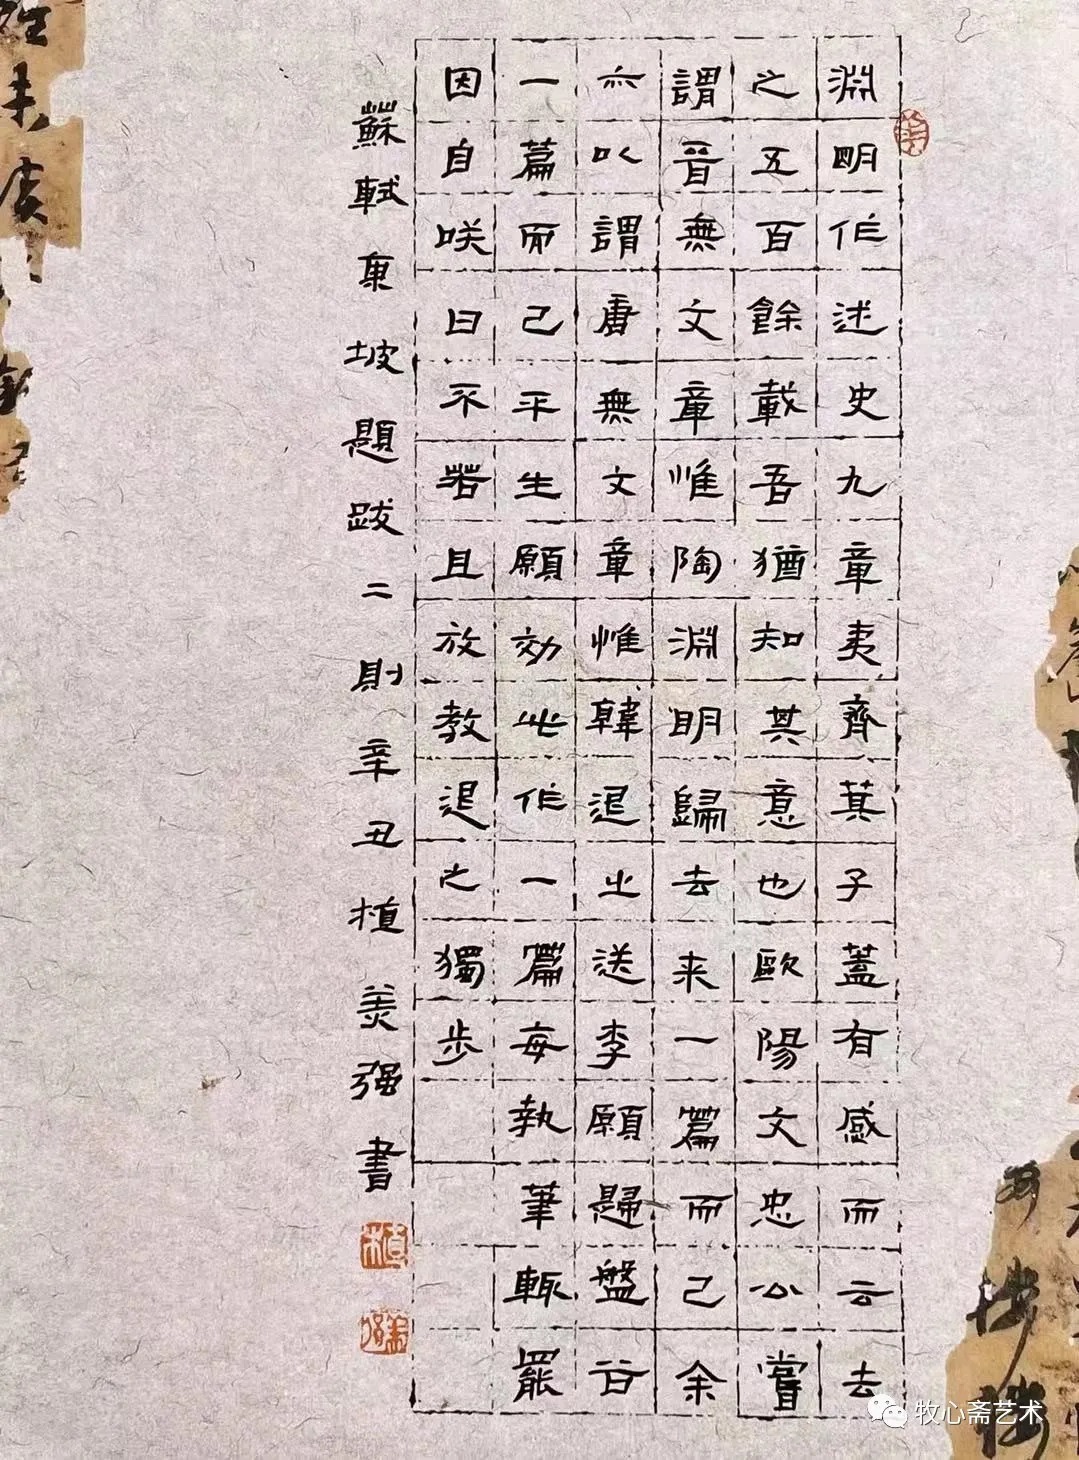 淵明作述史九章夷齊箕子蓋有感而云去
之五百餘載吾猶知其意也歐陽文忠公嘗
謂晉無文章惟陶淵明歸去来一篇而己余
亦以謂唐無文章惟韓退之送李願歸盤谷
一篇而己平生願効此作一篇每執筆輒罷
因自咲曰不若且放教退之獨步
蘇軾東坡題跋二則辛丑植美强書
牧心斋艺术